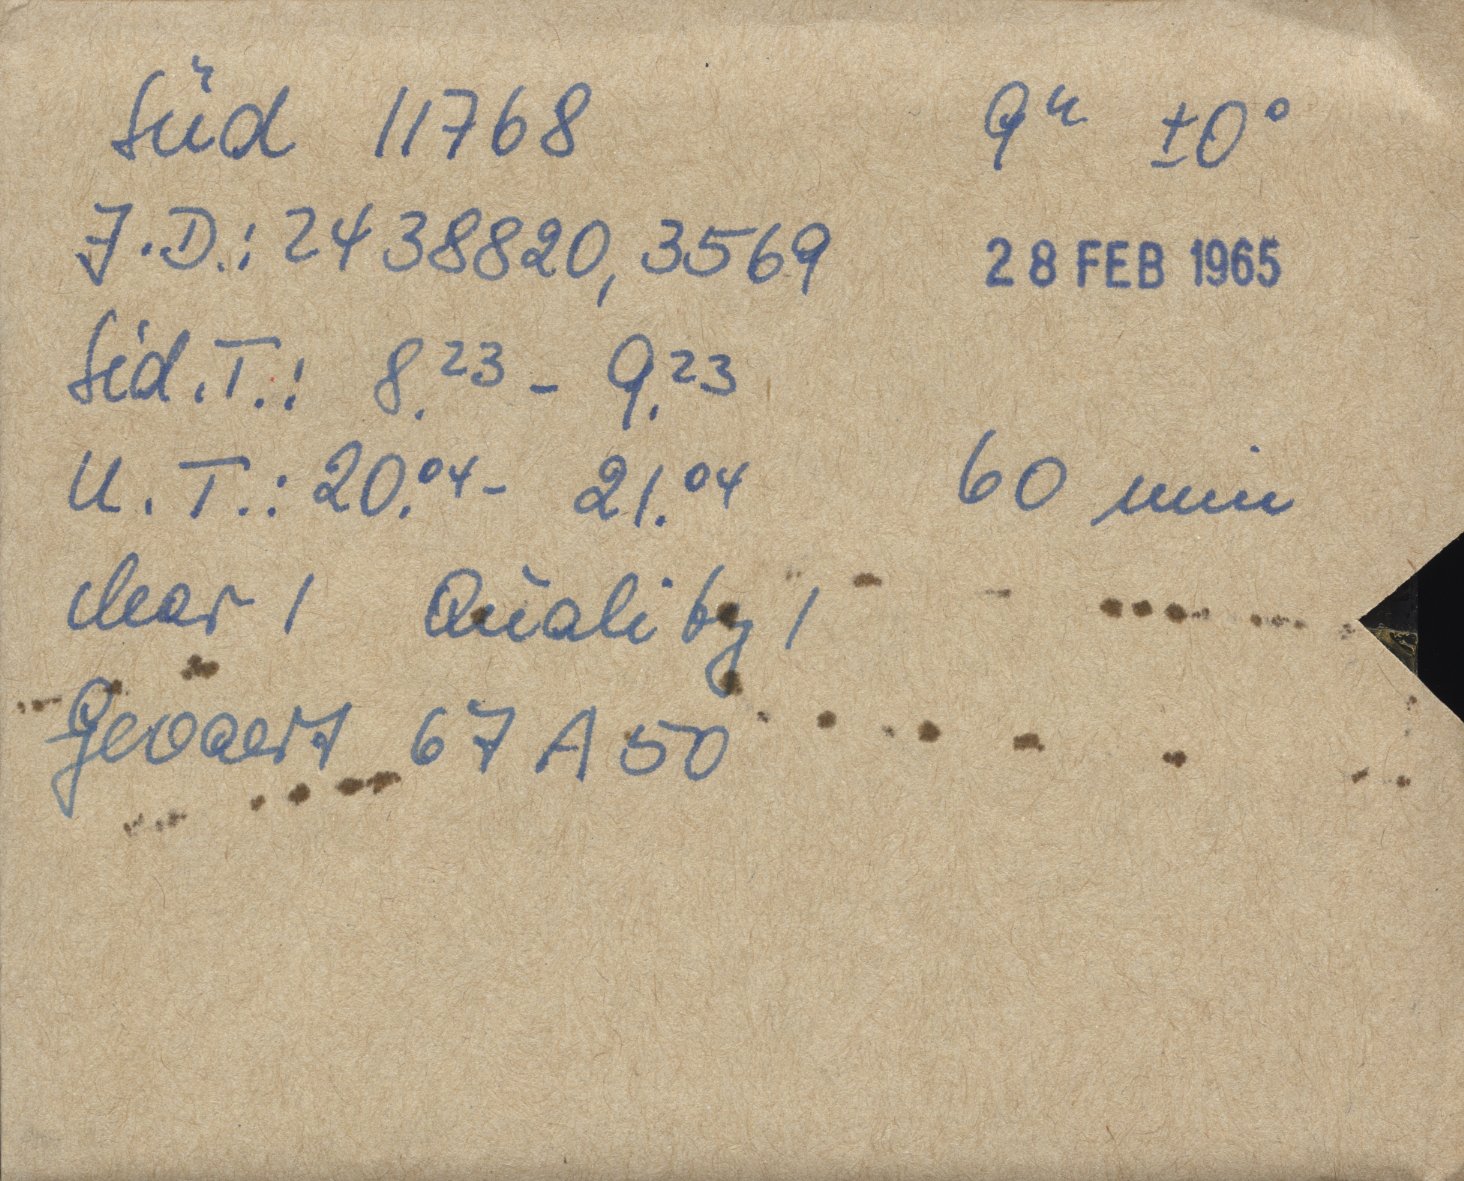 Süd 11768 9ʰ ±0°
J.D.: 2438820,3569 28 FEB 1965
Sid.T.: 8.²³ - 9.²³
U.T.: 20.⁰⁴ - 21.⁰⁴ 60 min
clear 1 Quality 1
Gevaert 67 A 50